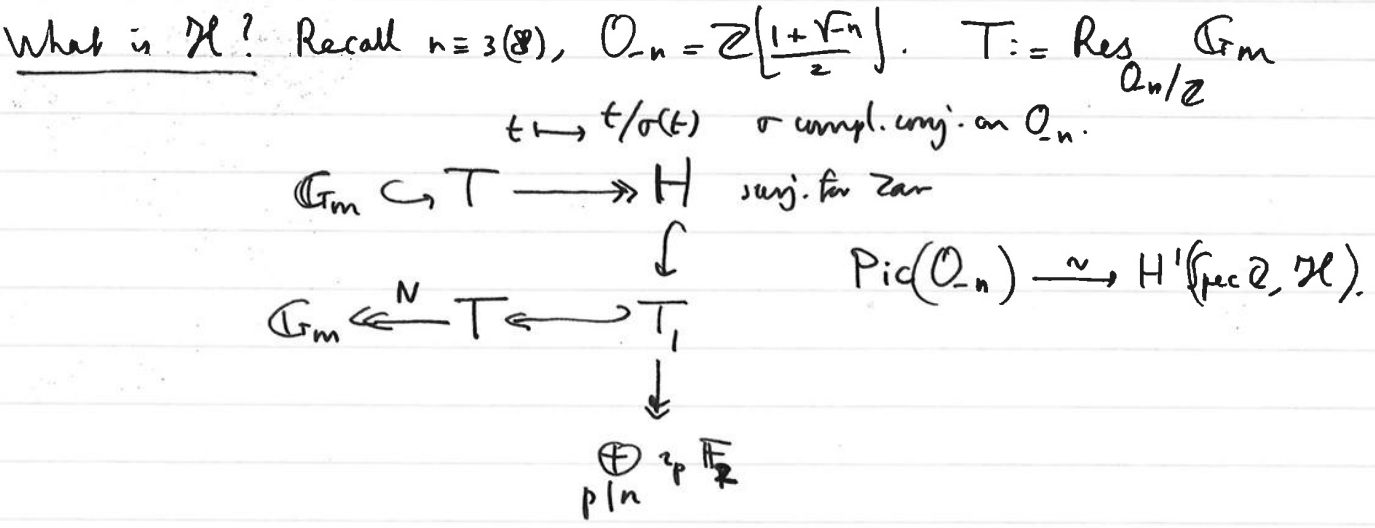 What is ℋ? Recall n ≡ 3(8), O_{-n} = ℤ[(1+√-n)/2]. T := Res_{O_{-n}/ℤ} 𝔾m
t ⟼ t/σ(t) σ compl. conj. on O_{-n}.
𝔾m ↪ T ↠ H surj. for Zar
Pic(O_{-n}) ⥲ H¹(Spec ℤ, ℋ).
𝔾m ↞ᴺ T ↩ T₁
⊕_{p|n} i_p 𝔽₂